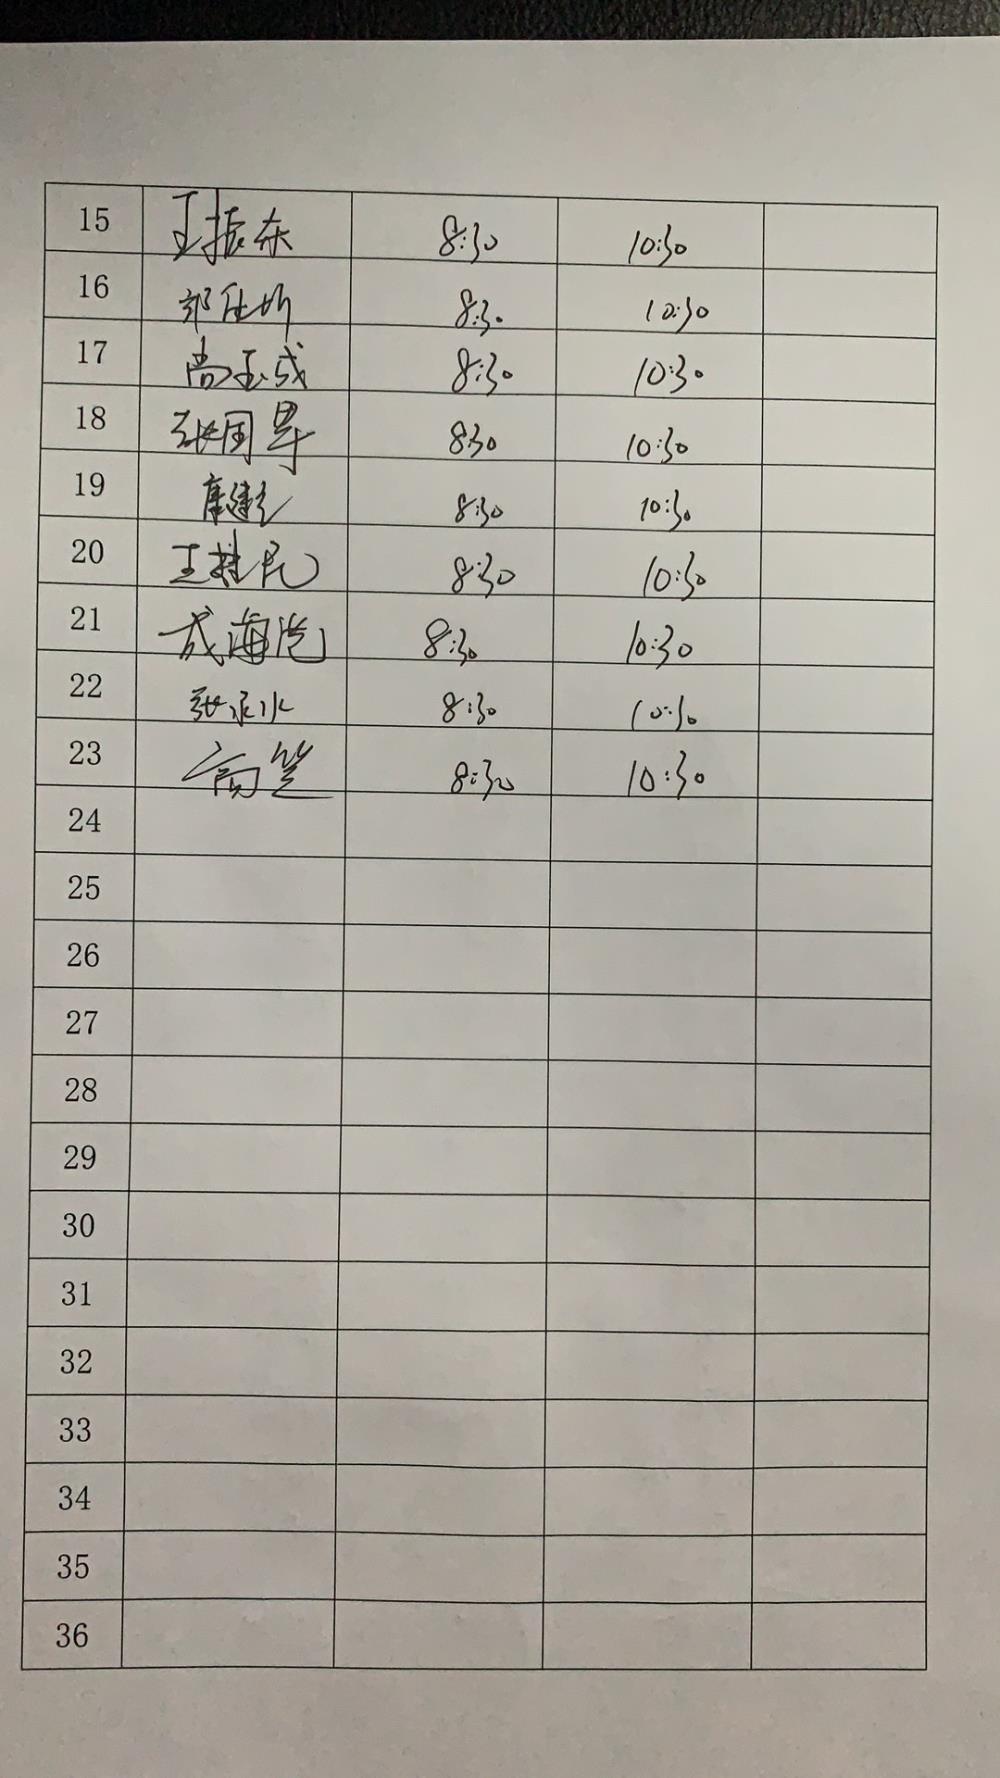 15 王振东 8:30 10:30
16 郭 8:30 10:30
17 尚玉成 8:30 10:30
18 张国 8:30 10:30
19 康建 8:30 10:30
20 王桂民 8:30 10:30
21 成海 8:30 10:30
22 张永水 8:30 10:30
23 高 8:30 10:30
24
25
26
27
28
29
30
31
32
33
34
35
36